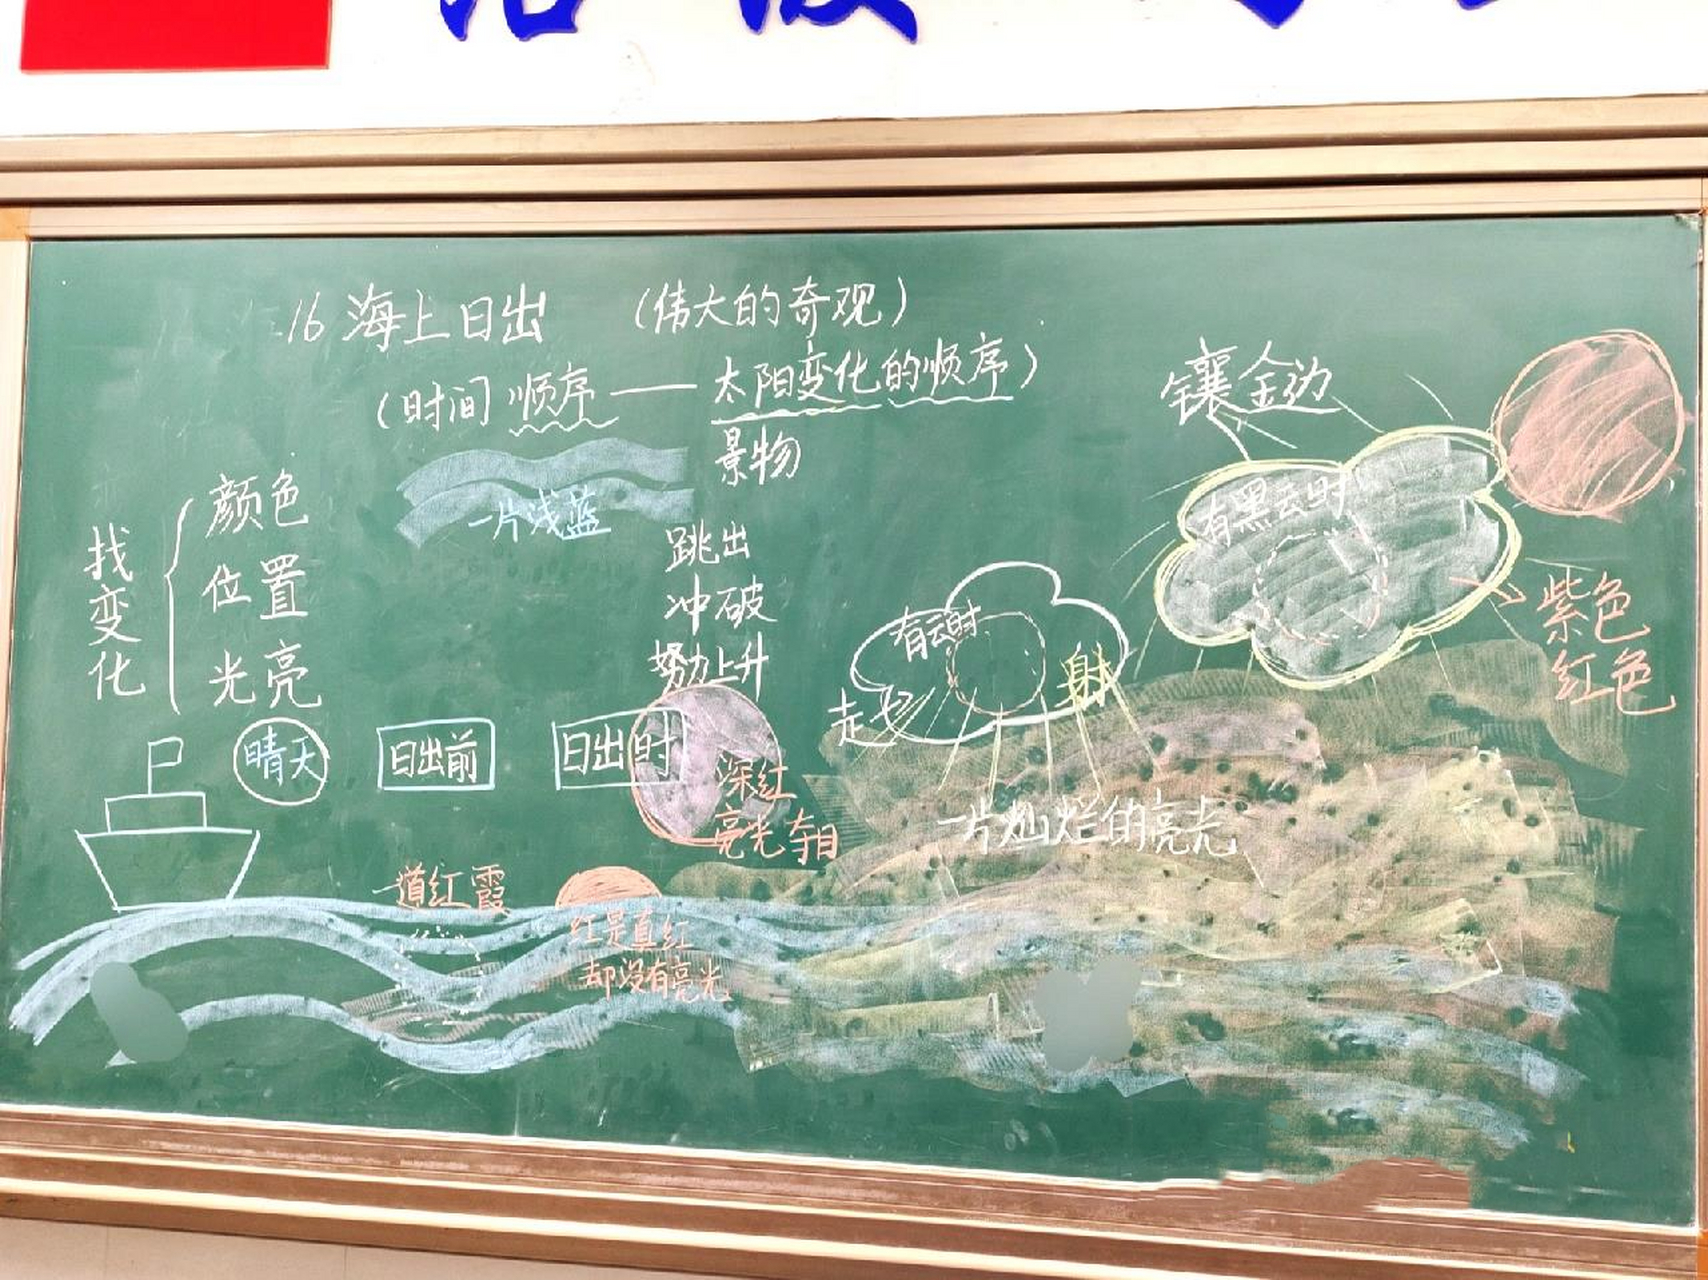 16 海上日出 (伟大的奇观)
(时间顺序——太阳变化的顺序)
景物
镶金边
找变化
颜色
位置
光亮
一片浅蓝
跳出
冲破
努力上升
有黑云时
有云时
射
紫色
红色
晴天
日出前
日出时
深红
亮光夺目
一片灿烂的亮光
一道红霞
红是真红
却没有亮光